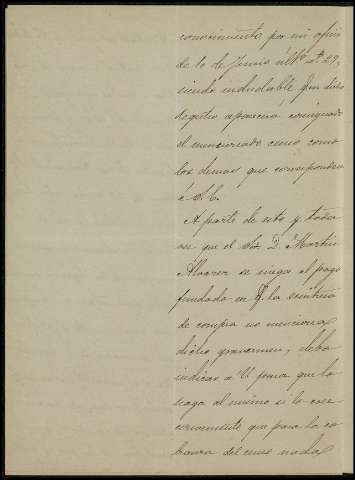 conocimiento por mi oficio
de 10 de Junio últº nº 29,
siendo indudable que dicho
registro aparecerá consignado
el mencionado censo como
los demas que corresponden
á S. E.
Aparte de esto y toda
vez que el Sor. D. Martin
Alvarez se niega al pago
fundado en q. la escritura
de compra no menciona
dicho gravamen, debo
indicar á U para que lo
haga al mismo si lo cree
conveniente que para la co
branza del censo nada